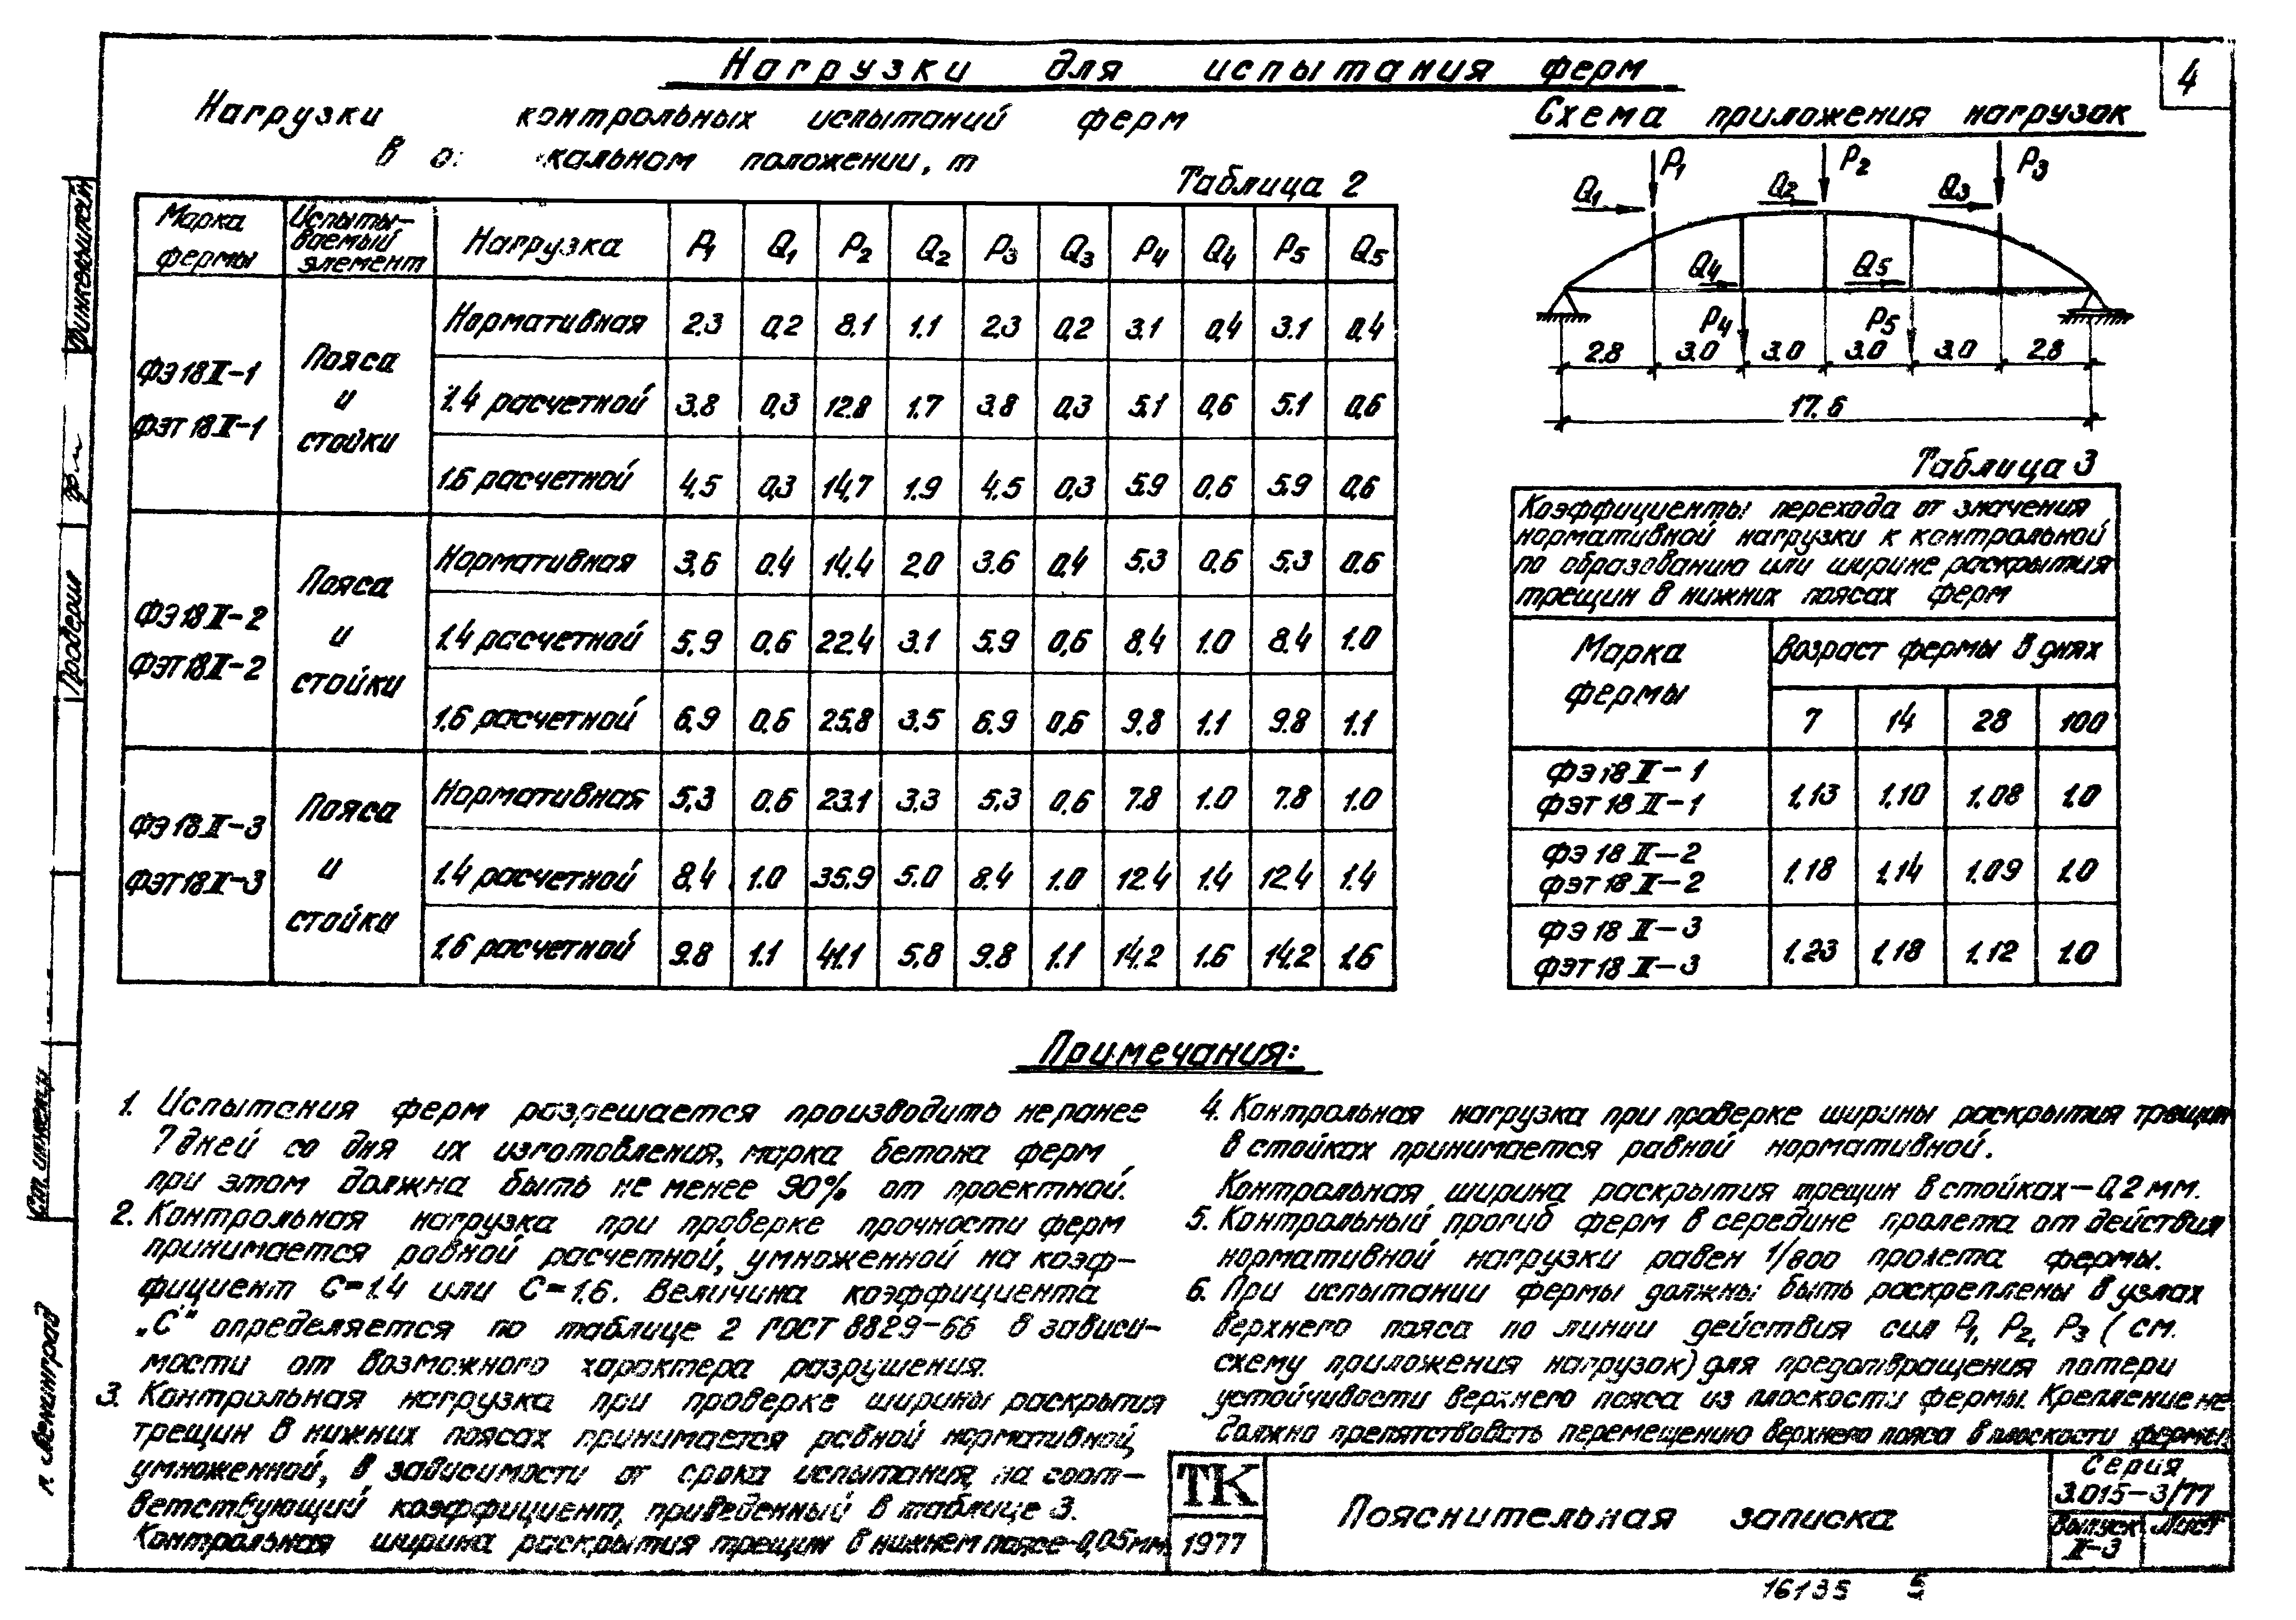 4
Нагрузки для испытания ферм
Нагрузки контрольных испытаний ферм
в положении, т
Таблица 2
Марка фермы | Испытываемый элемент | Нагрузка | P1 | Q1 | P2 | Q2 | P3 | Q3 | P4 | Q4 | P5 | Q5
ФЭ18II-1 ФЭТ18II-1 | Пояса и стойки | Нормативная | 2.3 | 0,2 | 8.1 | 1.1 | 2.3 | 0,2 | 3.1 | 0,4 | 3.1 | 0,4
1.4 расчетной | 3.8 | 0,3 | 12.8 | 1.7 | 3.8 | 0,3 | 5.1 | 0,6 | 5.1 | 0,6
1.6 расчетной | 4,5 | 0,3 | 14,7 | 1.9 | 4,5 | 0,3 | 5.9 | 0,6 | 5.9 | 0,6
ФЭ18II-2 ФЭТ18II-2 | Пояса и стойки | Нормативная | 3,6 | 0.4 | 14.4 | 2.0 | 3.6 | 0,4 | 5.3 | 0.6 | 5.3 | 0.6
1.4 расчетной | 5,9 | 0,6 | 22.4 | 3.1 | 5.9 | 0,6 | 8,4 | 1.0 | 8,4 | 1.0
1.6 расчетной | 6,9 | 0.6 | 25.8 | 3.5 | 6.9 | 0,6 | 9.8 | 1.1 | 9.8 | 1.1
ФЭ18II-3 ФЭТ18II-3 | Пояса и стойки | Нормативная | 5,3 | 0.6 | 23.1 | 3.3 | 5.3 | 0,6 | 7.8 | 1.0 | 7.8 | 1.0
1.4 расчетной | 8,4 | 1.0 | 35.9 | 5.0 | 8.4 | 1.0 | 12.4 | 1.4 | 12.4 | 1.4
1.6 расчетной | 9.8 | 1.1 | 41.1 | 5.8 | 9.8 | 1.1 | 14.2 | 1.6 | 14.2 | 1.6
Схема приложения нагрузок
P1 P2 P3
Q1 Q2 Q3
Q4 Q5
P4 P5
2.8 3.0 3.0 3.0 3.0 2.8
17.6
Таблица 3
Коэффициенты перехода от значения
нормативной нагрузки к контрольной
по образованию или ширине раскрытия
трещин в нижних поясах ферм
Марка фермы | Возраст фермы в днях
7 | 14 | 28 | 100
ФЭ18II-1 ФЭТ18II-1 | 1,13 | 1,10 | 1.08 | 1.0
ФЭ18II-2 ФЭТ18II-2 | 1.18 | 1,14 | 1.09 | 1.0
ФЭ18II-3 ФЭТ18II-3 | 1.23 | 1,18 | 1.12 | 1.0
Примечания:
1. Испытания ферм разрешается производить не ранее
7 дней со дня их изготовления, марка бетона ферм
при этом должна быть не менее 90% от проектной.
2. Контрольная нагрузка при проверке прочности ферм
принимается равной расчетной, умноженной на коэф-
фициент С=1.4 или С=1.6. Величина коэффициента
„С" определяется по таблице 2 ГОСТ 8829-66 в зависи-
мости от возможного характера разрушения.
3. Контрольная нагрузка при проверке ширины раскрытия
трещин в нижних поясах принимается равной нормативной,
умноженной, в зависимости от срока испытания, на соот-
ветствующий коэффициент, приведенный в таблице 3.
Контрольная ширина раскрытия трещин в нижнем поясе-0,05мм.
4. Контрольная нагрузка при проверке ширины раскрытия трещин
в стойках принимается равной нормативной.
Контрольная ширина раскрытия трещин в стойках-0,2мм.
5. Контрольный прогиб ферм в середине пролета от действия
нормативной нагрузки равен 1/800 пролета фермы.
6. При испытании фермы должны быть раскреплены в узлах
верхнего пояса по линии действия сил P1, P2, P3 (см.
схему приложения нагрузок) для предотвращения потери
устойчивости верхнего пояса из плоскости фермы. Крепление не
должно препятствовать перемещению верхнего пояса в плоскости фермы.
ТК
1977
Пояснительная записка
Серия
3.015-3/77
Выпуск
II-3
Лист
16135 5
Финкельштейн
Проверил
Ст. инженер
г. Ленинград